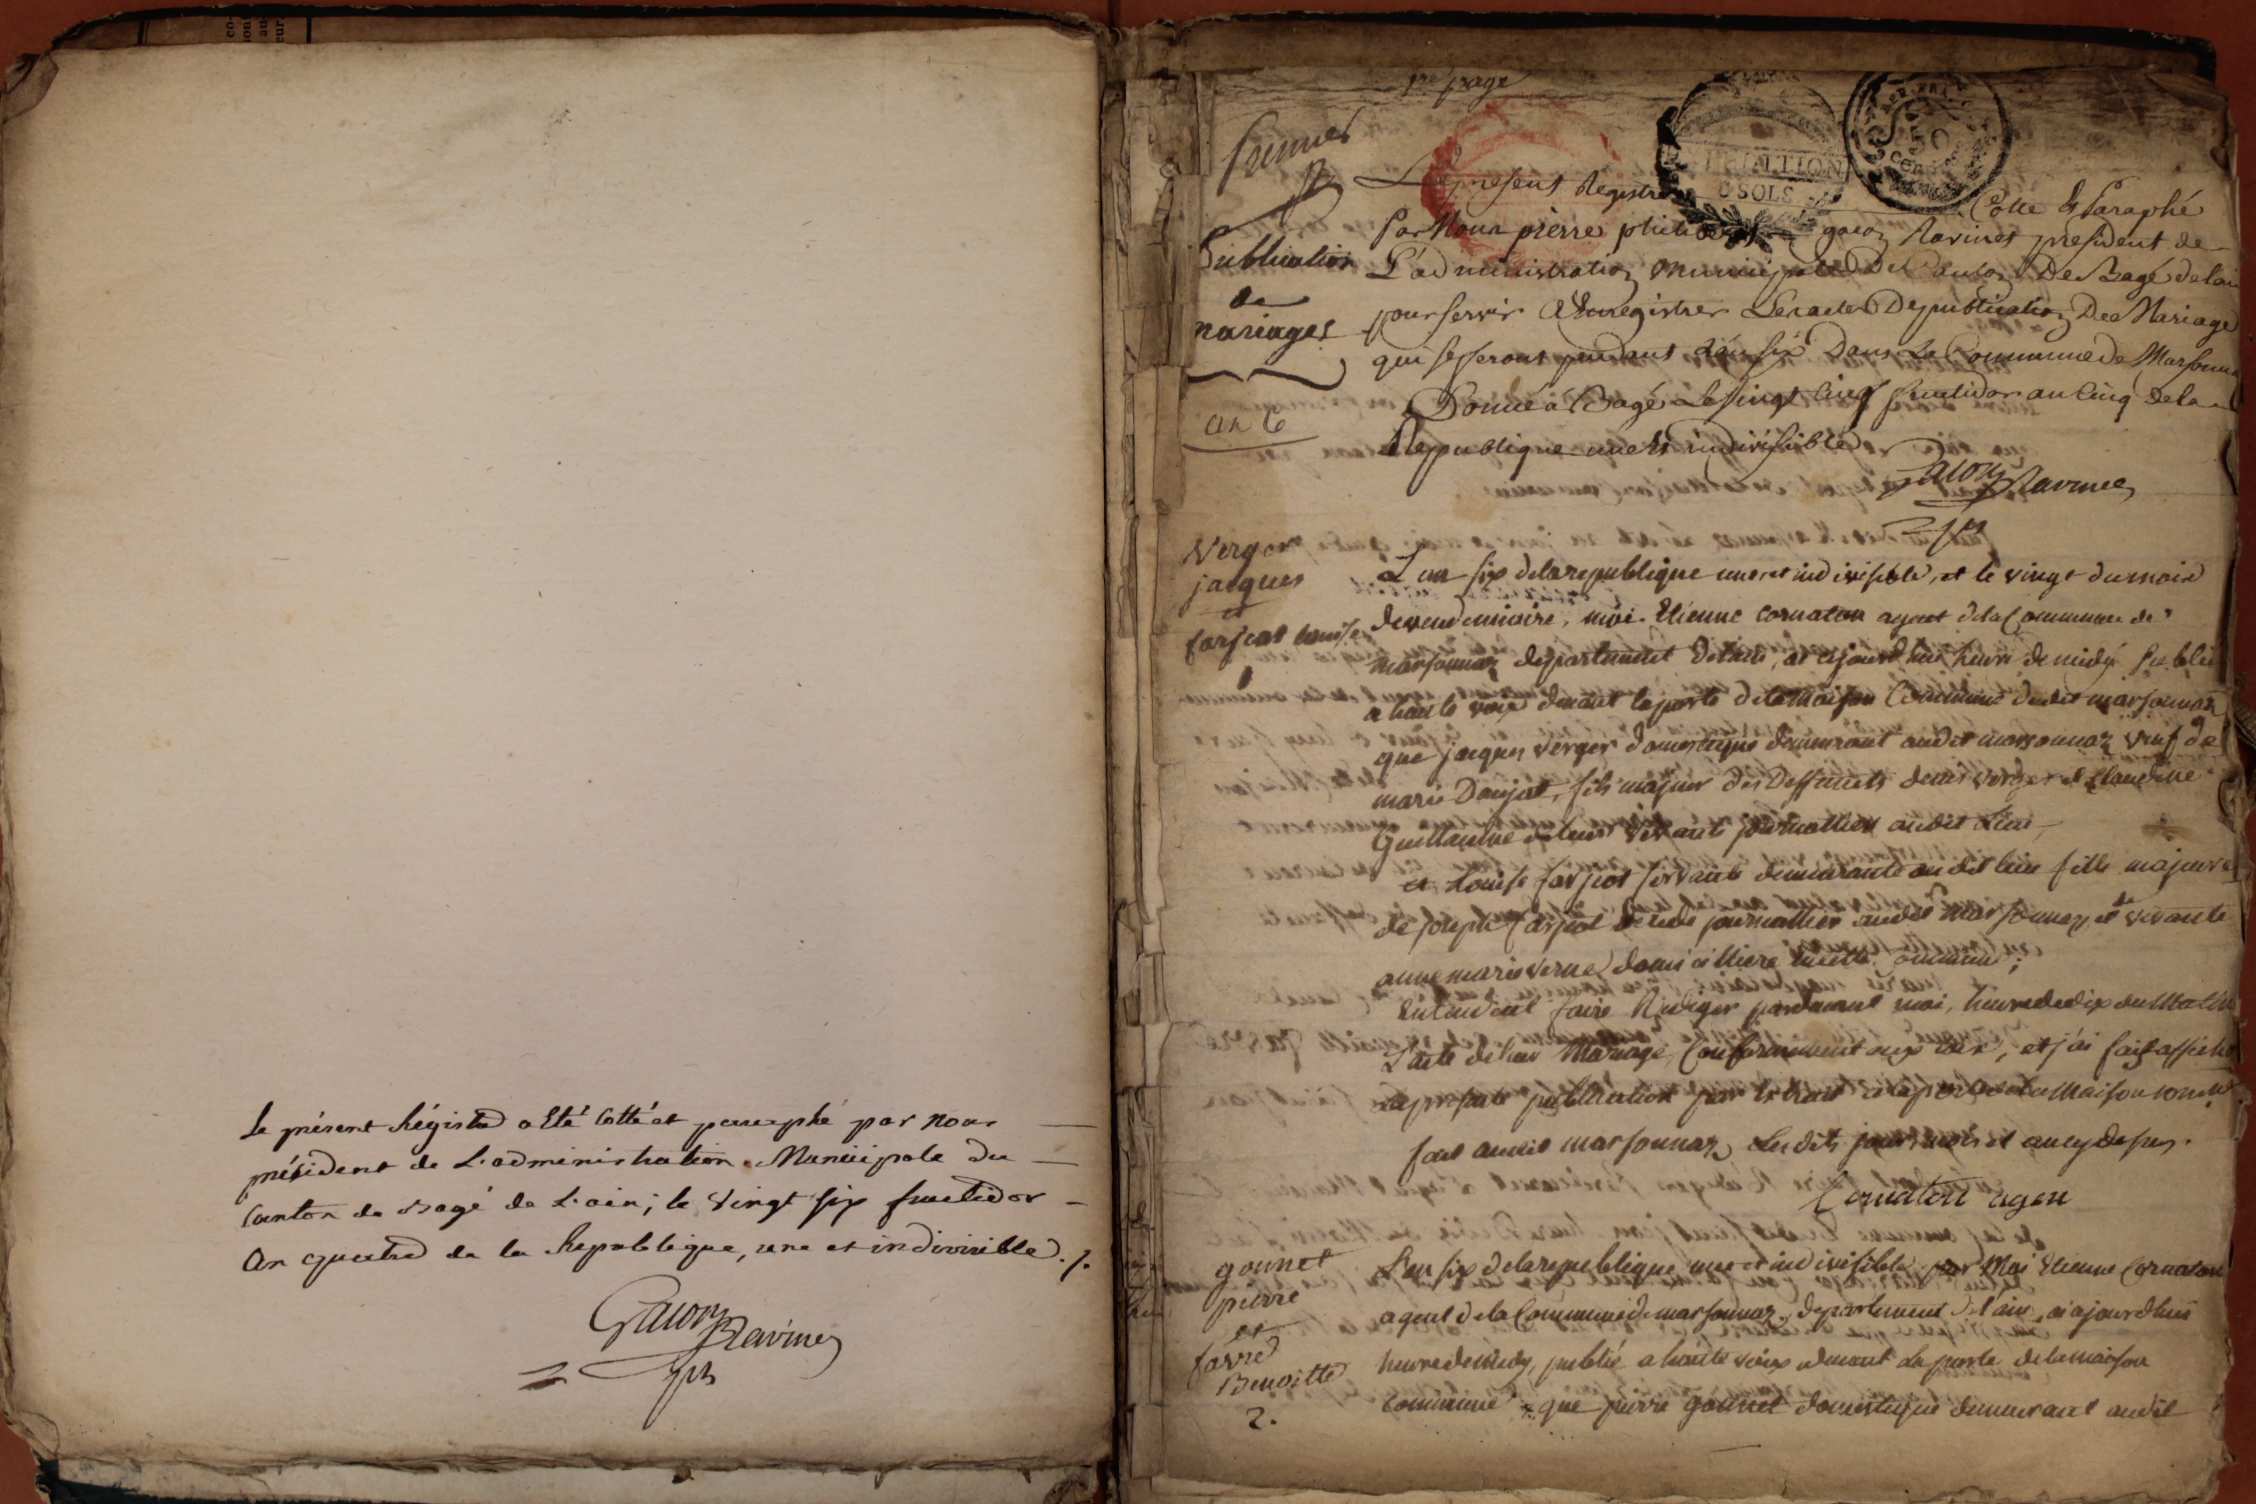 Le présent Régistre a Eté Cotté et paraphé par nous
président de L'administration Municipale du
Canton de Bagé de L'ain; le Vingt six fructidor
an quatre de la Republique, une et indivisible ./.
Gacon Ravinet
1re page
premier
Publication
de
mariages
an 6
Le present Registre Cotté & Paraphé
Par Nous pierre philibert gacon Ravinet president de
L'administration Municipale De Canton De Bagé delain
pour servir A Enregistrer Les actes De publication De Mariage
qui se feront pendant L'an six Dans La Commune de Marsonna
Donné á Bagé Le vingt cinq fructidor an Cinq de la
Republique une et indivisible
Gacon Ravinet
Verger
jacques
et
farjeot Louise
1
L'an six dela republique une et indivisible, et le vingt du mois
devendemiaire, moi Etienne cornaton agent dela Commune de
marsonnaz departement delain, ai cejourdhui heure de midy Publié
a haute voix devant la porte dela Maison Commune dudit marsonnaz
que jacques verger domestique demeurant audit marsonnaz veuf de
marie Daujat, fils majeur des Deffunts denis verger et Claudine
Guillaume deleur vivants journallier audit Lieu,
et Louise farjeot servante demeurante au dit lieu fille majeure
de joseph farjeot journallier audit Marsonnaz et de vivante
anne marie verne domicilliere commune;
Entendent faire Rediger pardevant moi, heure de dix du Matin
L'acte de leur Mariage, Conformement aux loix, et j'ai fait afficher
la presente publication par Extrait a la porte de la Maison comune
fait audit marsonnaz, les dits jour mois et an cy dessus.
Cornaton agent
gounet
pierre
et
favre
Benoitte
2.
L'an six dela republique une et indivisible par Moi Etienne Cornaton
agent dela Commune de marsonnaz, departement de l'ain, ai ajourdhui
heure de Midy, publié a haute voix devant la porte de la maison
commune que pierre gounet domestique demeurant audit